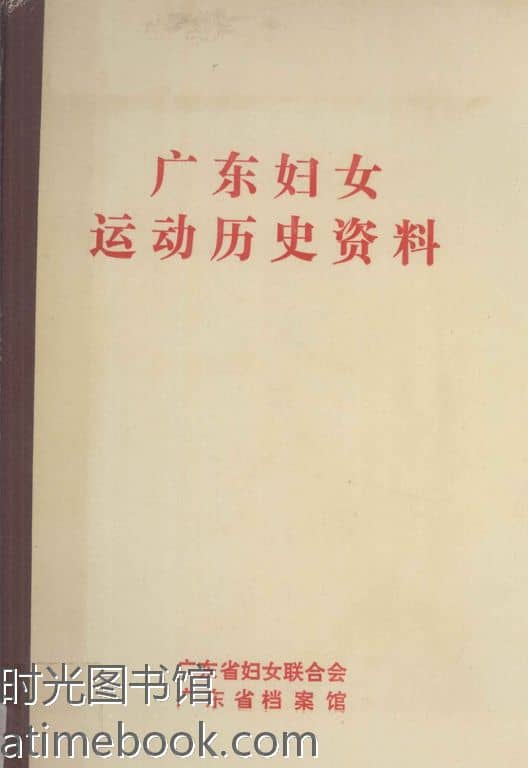 广东妇女
运动历史资料
广东省妇女联合会
广东省档案馆
时光图书馆
atimebook.com